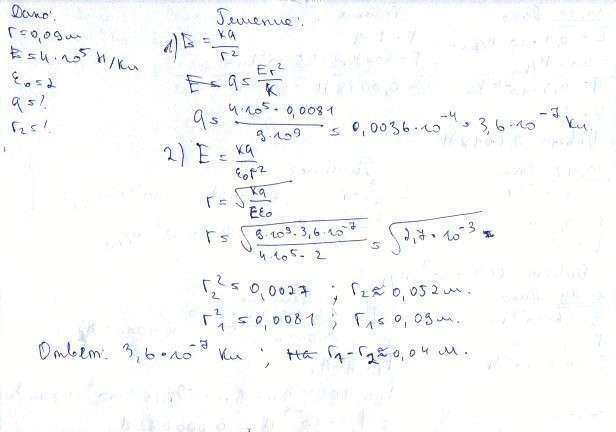 Дано:
r = 0,09 м
E = 4·10⁵ Н/Кл
ε₀ = 2
q = ?
r₂ = ?
Решение:
1) E = kq / r²
q = Er² / k
q = 4·10⁵ · 0,0081 / 9·10⁹ = 0,0036·10⁻⁴ = 3,6·10⁻⁷ Кл
2) E = kq / ε₀r²
r = √(kq / Eε₀)
r = √(9·10⁹·3,6·10⁻⁷ / 4·10⁵·2) = √(2,7·10⁻³) =
r₂² = 0,0027 ; r₂ ≈ 0,052 м.
r₁² = 0,0081 ; r₁ = 0,09 м.
Ответ: 3,6·10⁻⁷ Кл ; r₁ - r₂ ≈ 0,04 м.